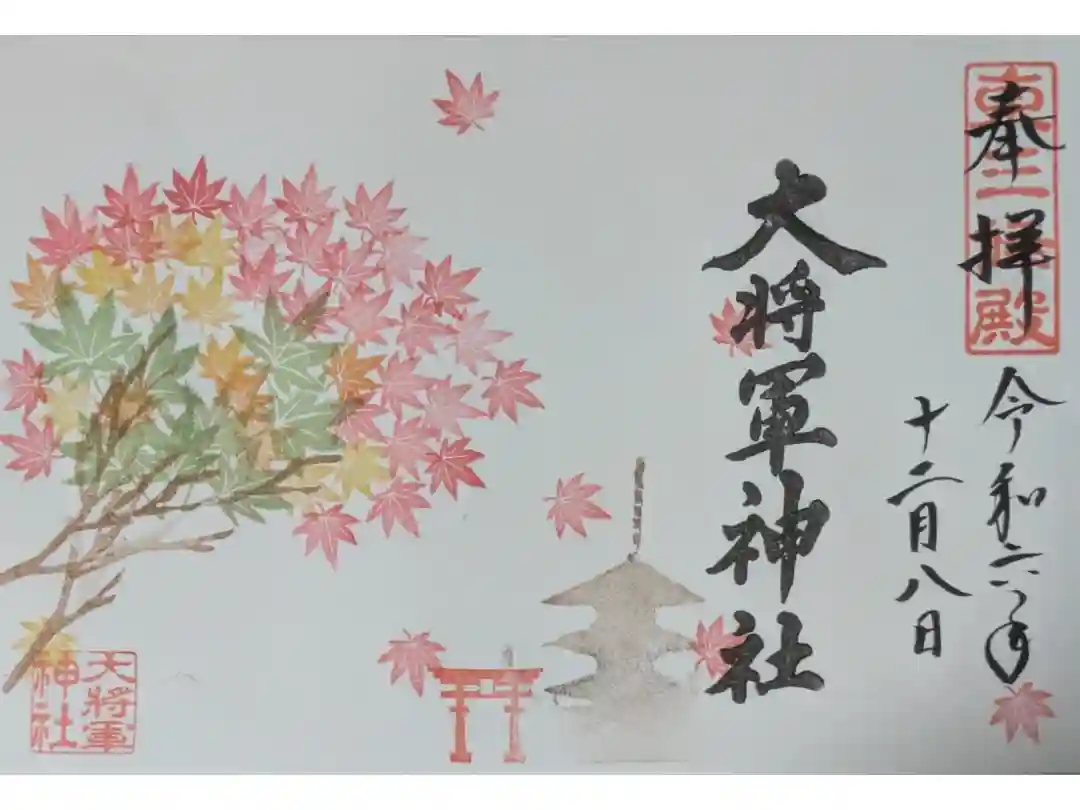 奉拝
東三條殿
令和六年
十二月八日
大将軍神社
大将軍
神社